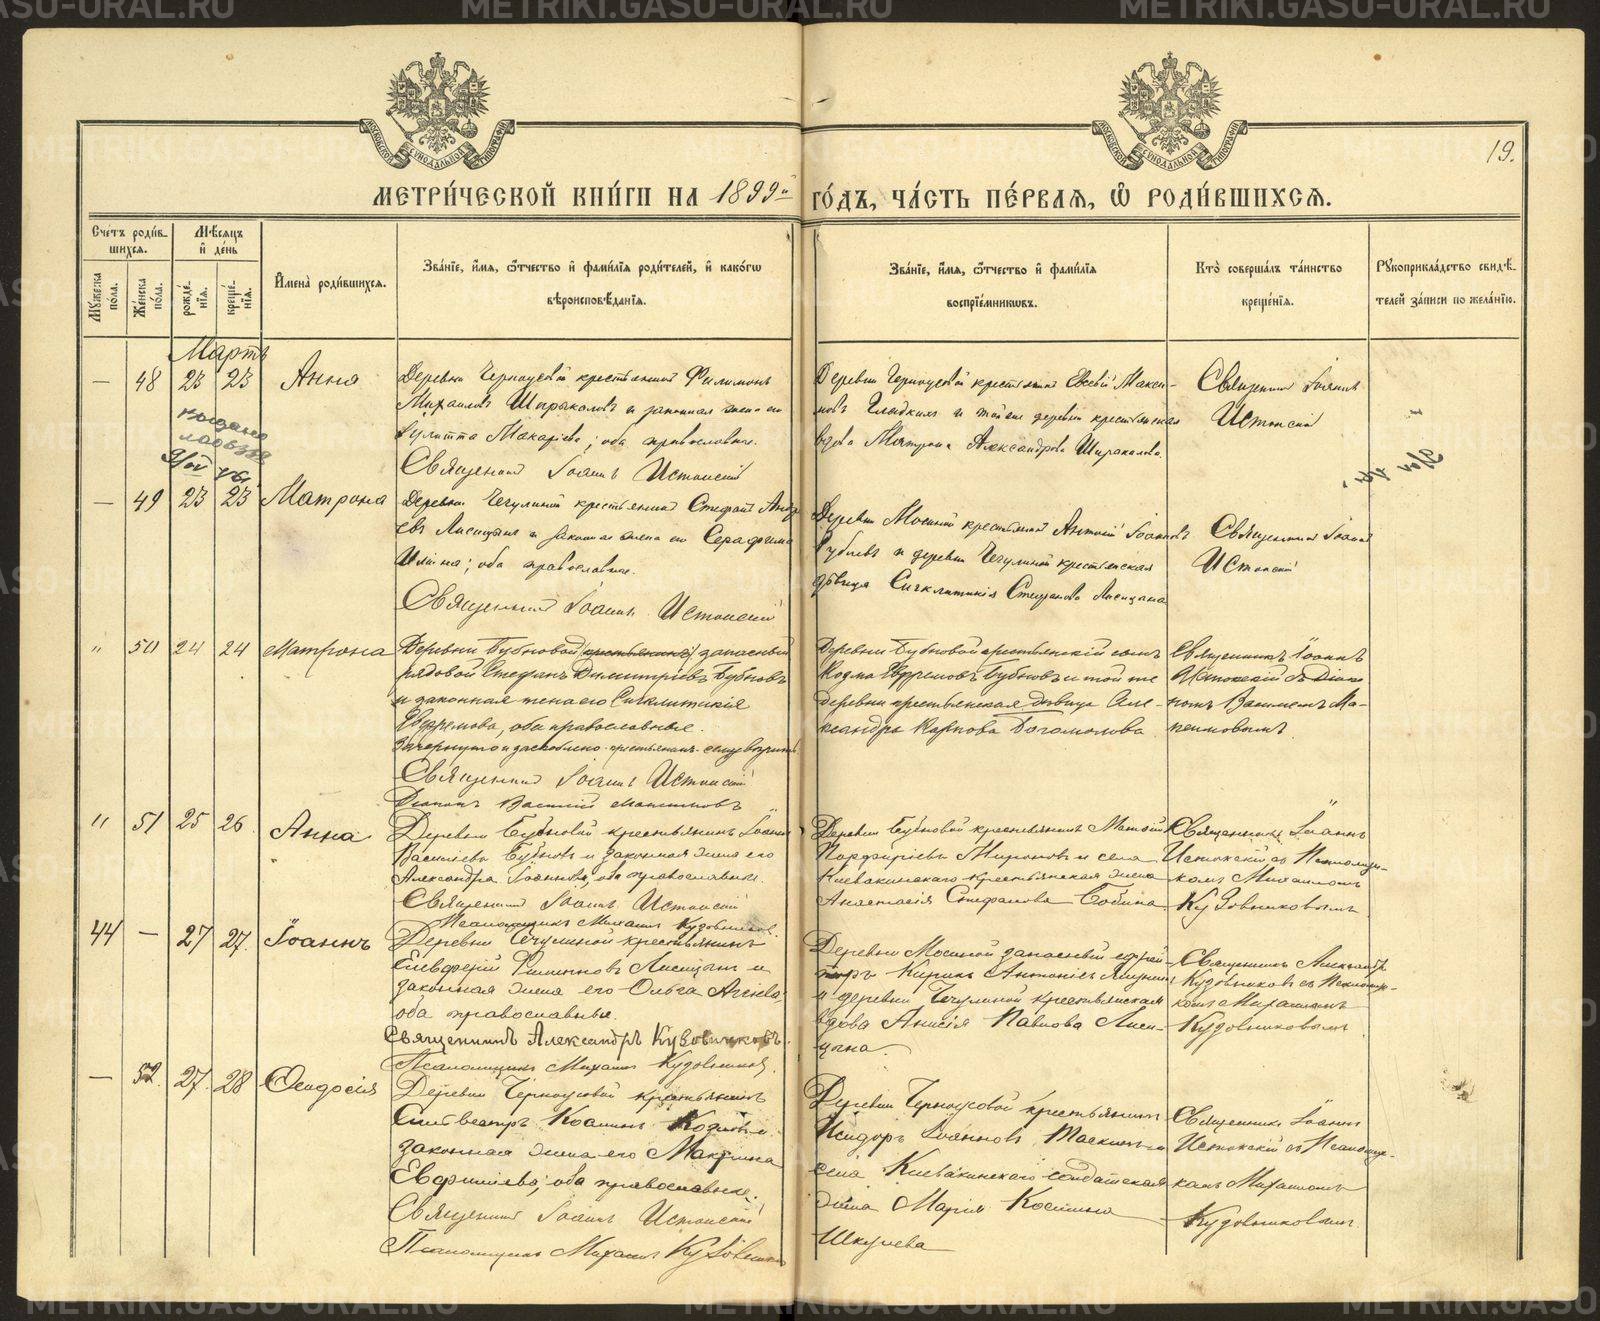 METRIKI.GASU-URAL.RU
МОСКОВСКОЙ СѴНОДАЛЬНОЙ ТИПОГРАФІИ
МОСКОВСКОЙ СѴНОДАЛЬНОЙ ТИПОГРАФІИ
19.
МЕТРИ́ЧЕСКОЙ КНИ́ГИ НА 1899й ГО́ДЪ, ЧА́СТЬ ПЕ́РВАЯ, Ѿ РОДИ́ВШИХСЯ.
Сче́тъ роди́в-
шихся.
Му́жеска по́ла.
Же́нска по́ла.
Мѣ́сяцъ
и҆ де́нь
рожде́-
нїя.
креще́-
нїя.
И҆мена̀ роди́вшихся.
Зва́нїе, и҆́мя, ѻ҆́тчество и҆ фами́лїя роди́телей, и҆ како́гѡ
вѣроисповѣ́данїя.
Зва́нїе, и҆́мя, ѻ҆́тчество и҆ фами́лїя
воспрїе́мникѡвъ.
Кто̀ соверша́лъ та́инство
креще́нїя.
Рꙋкоприкла́дство свидѣ́-
телей за́писи по жела́нїю.
Мартъ
— 48 23 23 Анна
Деревни Черноусовой крестьянинъ Филимонъ
Михайловъ и законная жена его
Макарієва; оба православные.
Священникъ Іоаннъ Истокскій
Деревни Черноусовой крестьянинъ Евсевій Макси-
мовъ и той же деревни крестьянская
вдова Матрона Александрова
Священникъ Іоаннъ
Истокскій
— 49 23 23 Матрона
Деревни Чечулиной крестьянинъ Стефанъ Андре
евъ Лисицынъ и законная жена его Серафима
Ильина; оба православные.
Священникъ Іоаннъ Истокскій
Деревни Мосиной крестьянинъ Антоній Іоанновъ
и деревни Чечулиной крестьянская
дѣвица Сигклитикія Стефанова Лисицына
Священникъ Іоаннъ
Истокскій
" 50 24 24 Матрона
Деревни Бубновой (крестьянинъ) запасный
рядовой Стефанъ Димитріевъ Бубновъ
и законная жена его Сигклитикія
Ефремова, оба православные.
Священникъ Іоаннъ Истокскій
Діаконъ Василій
Деревни Бубновой крестьянскій сынъ
Козма Ефремовъ Бубновъ и той же
деревни крестьянская дѣвица Але-
ксандра Карпова Богомолова
Священникъ Іоаннъ
Истокскій съ Діако
номъ Василіемъ
" 51 25 26 Анна
Деревни Бубновой крестьянинъ Іоаннъ
Васильевъ Бубновъ и законная жена его
Александра Іоаннова, оба православные.
Священникъ Іоаннъ Истокскій
Псаломщикъ Михаилъ Кузовниковъ.
Деревни Бубновой крестьянинъ Матѳій
Порфиріевъ Мироновъ и села
Клевакинскаго крестьянская жена
Анастасія Стефанова Бобина.
Священникъ Іоаннъ
Истокскій съ Псаломщи-
комъ Михаиломъ
Кузовниковымъ
44 — 27 27. Іоаннъ
Деревни Чечулиной крестьянинъ
Елевферій Лисицынъ и
законная жена его Ольга
оба православные.
Священникъ Александръ Кузовниковъ.
Псаломщикъ Михаилъ Кузовниковъ.
Деревни Мосиной запасный
Кирикъ Антоніевъ
и деревни Чечулиной крестьянская
вдова Анисія Павлова Лиси-
цына.
Священникъ Александръ
Кузовниковъ съ Псаломщи-
комъ Михаиломъ
Кузовниковымъ
— 52. 27. 28 Ѳеодосія
Деревни Черноусовой крестьянинъ
Сильвестръ Косминъ и
законная жена его Макрина
оба православные.
Священникъ Іоаннъ Истокскій
Псаломщикъ Михаилъ Кузовниковъ
Деревни Черноусовой крестьянинъ
Исидоръ Іоанновъ и
села Клевакинскаго солдатская
жена Марія Космина
Священникъ Іоаннъ
Истокскій съ Псаломщи-
комъ Михаиломъ
Кузовниковымъ.